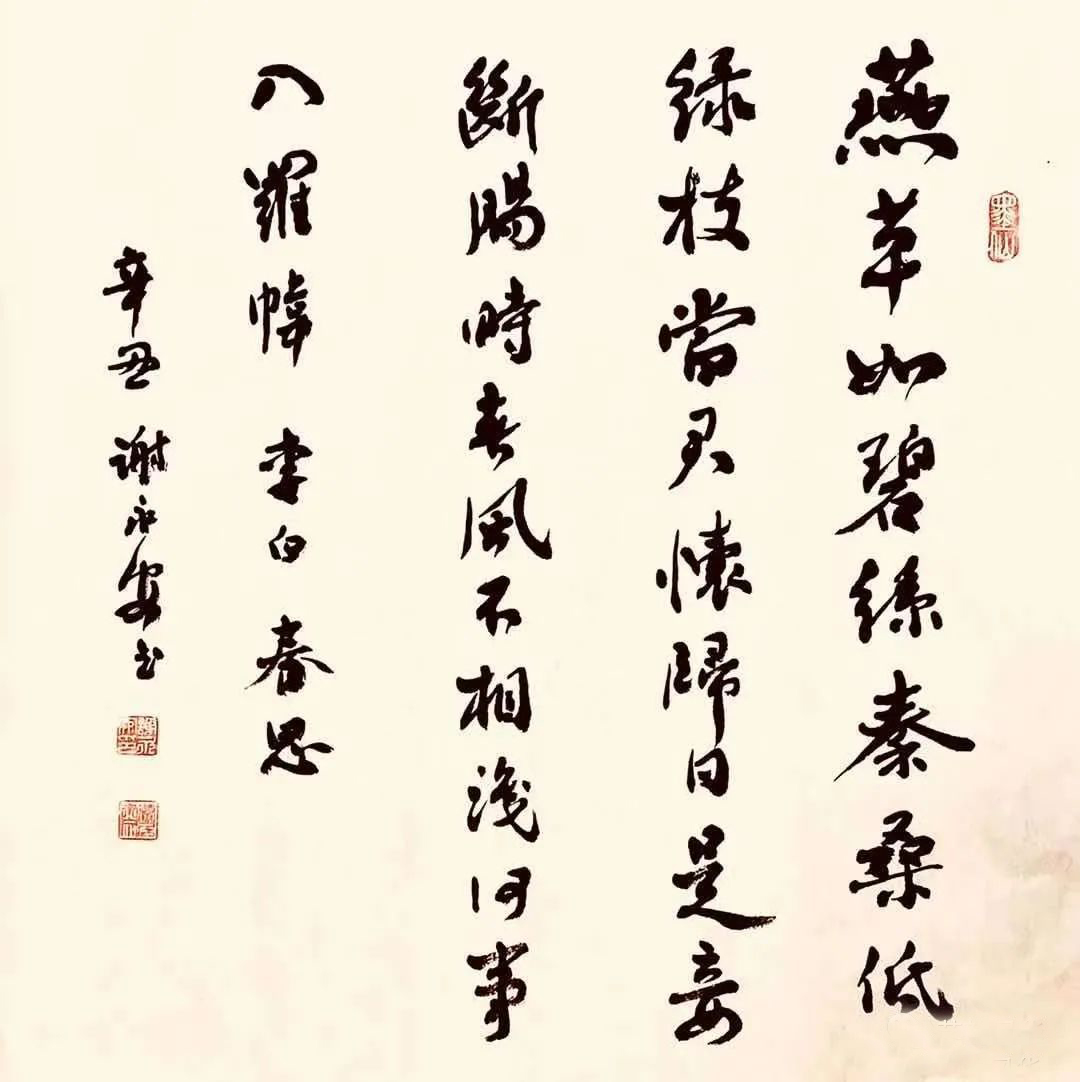 燕草如碧絲秦桑低
緑枝當君懷歸日是妾
斷腸時春風不相識何事
入羅幃 李白 春思
辛丑 謝永安书